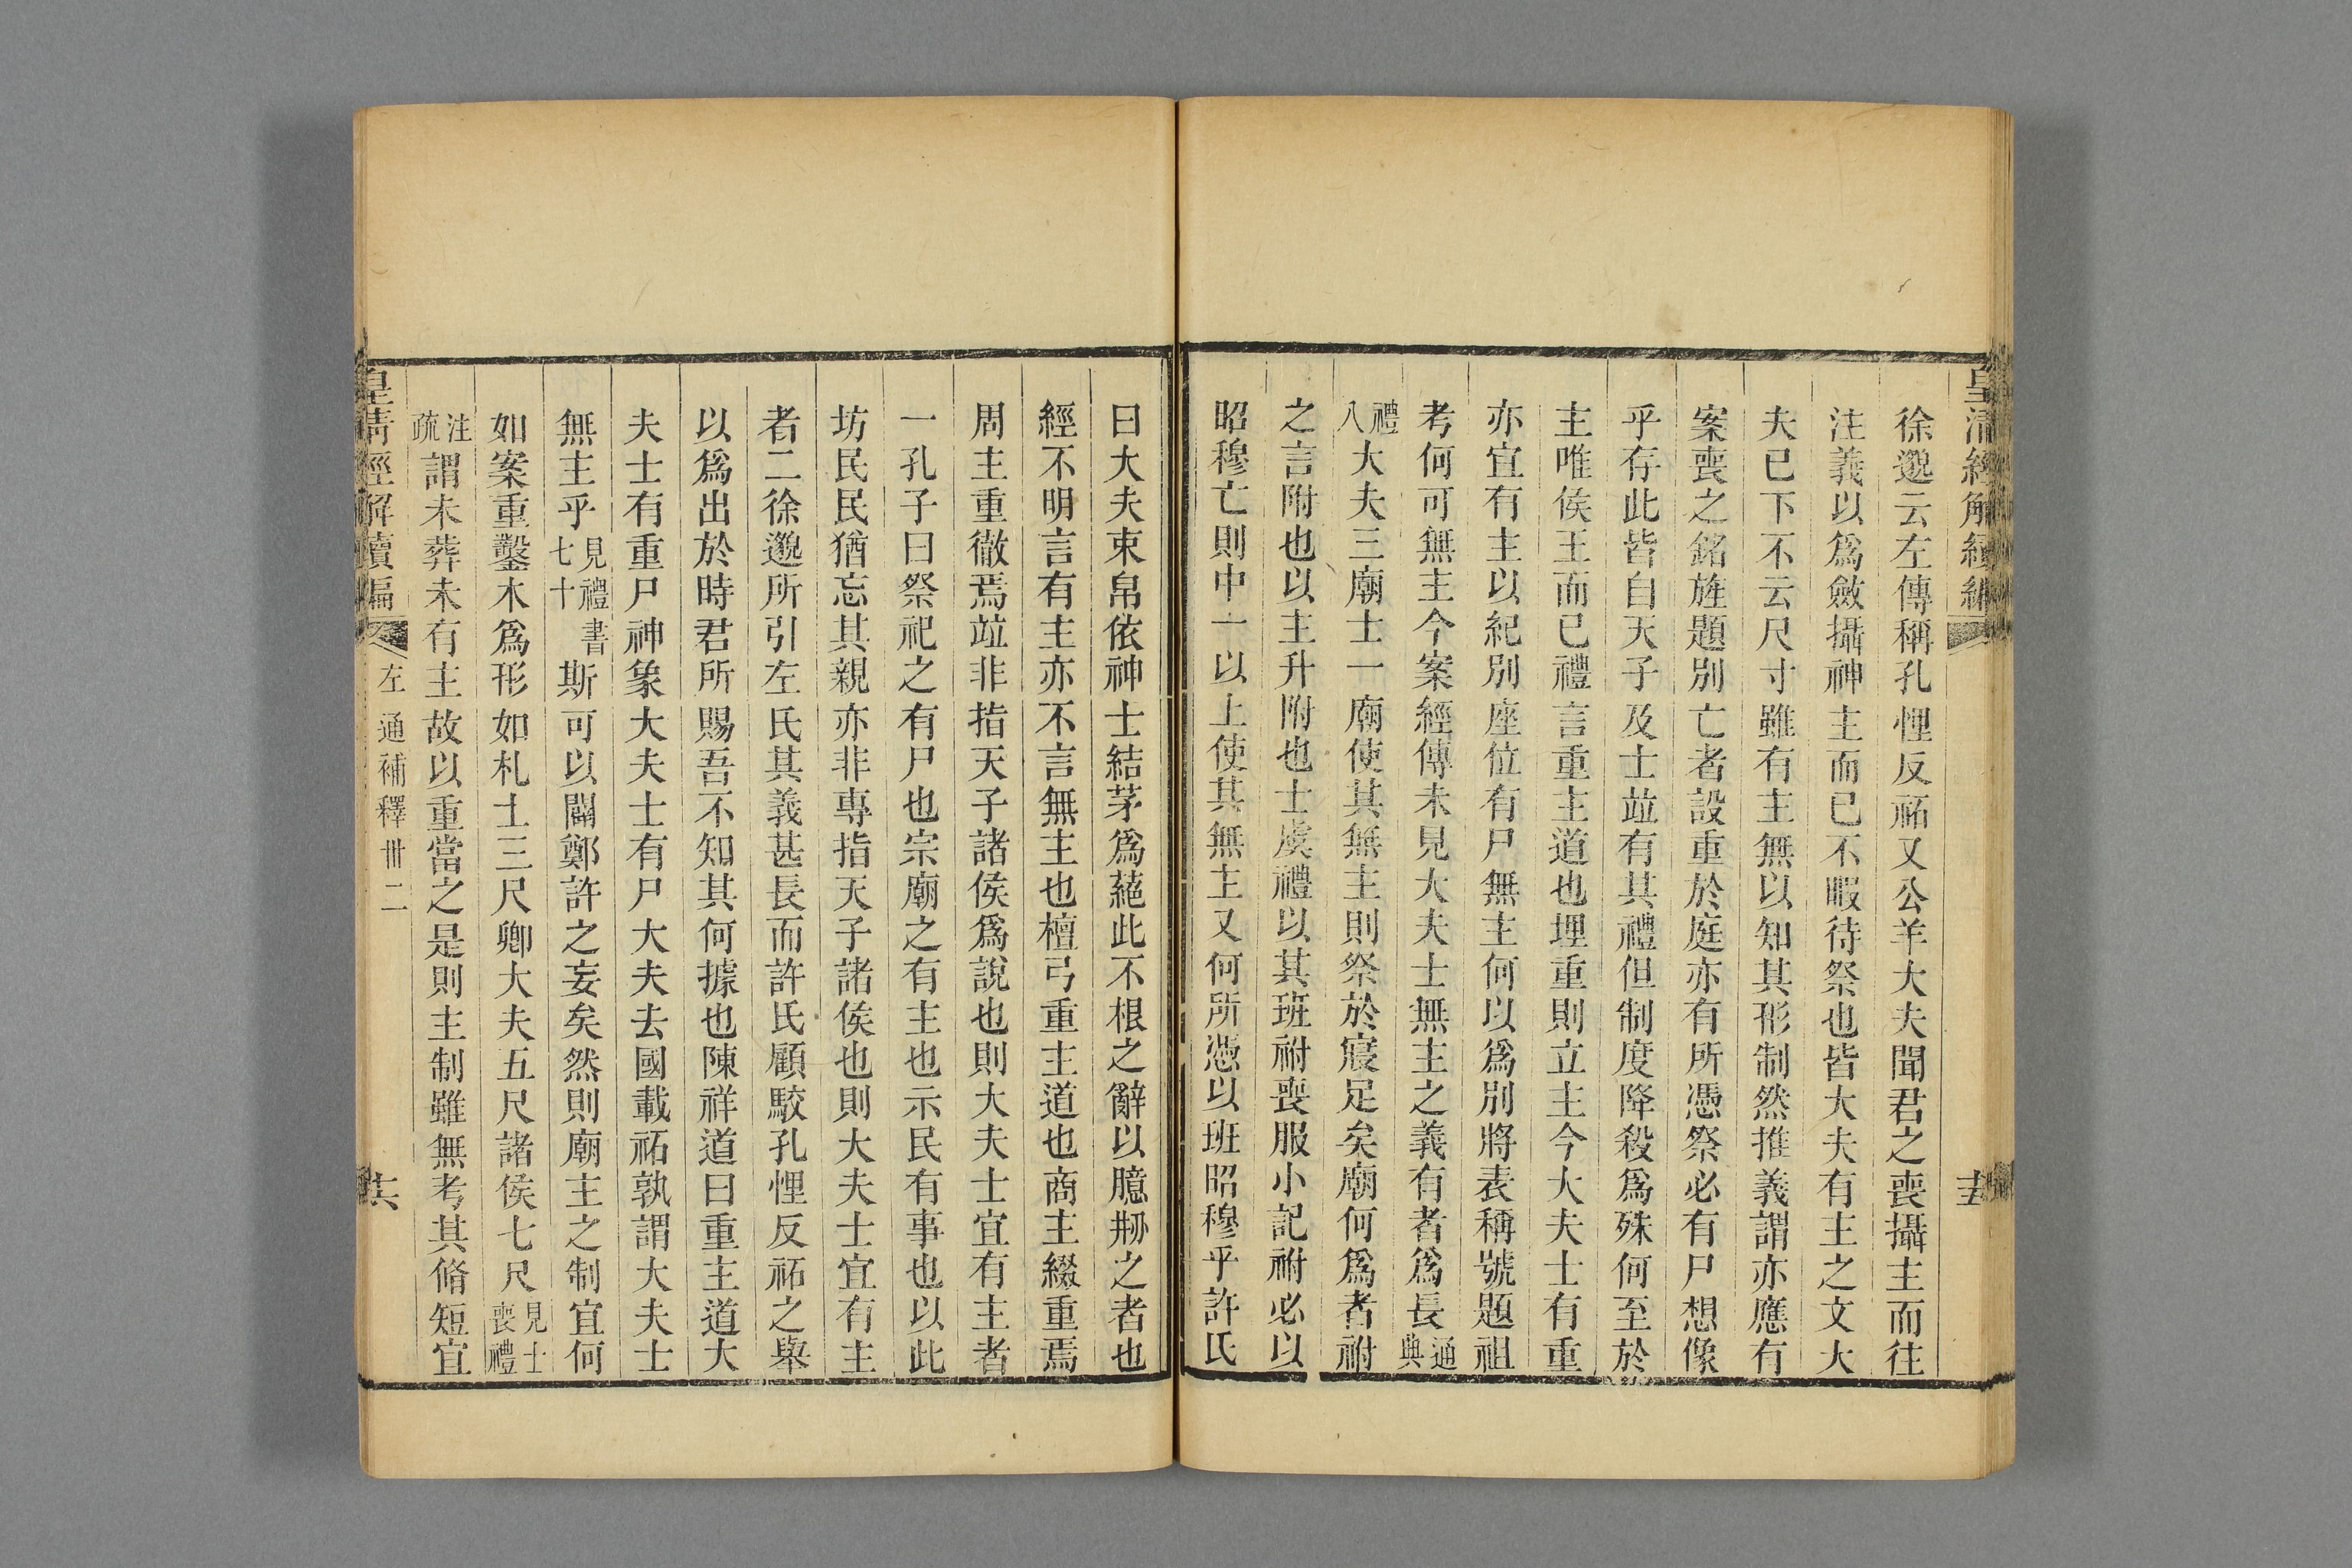 皇清經解續編
十五
徐邈云左傳稱孔悝反祏又公羊大夫聞君之喪攝主而往
注義以爲斂攝神主而已不暇待祭也皆大夫有主之文大
夫已下不云尺寸雖有主無以知其形制然推義謂亦應有
案喪之銘旌題別亡者設重於庭亦有所憑祭必有尸想像
乎存此皆自天子及士竝有其禮但制度降殺爲殊何至於
主唯侯王而已禮言重主道也埋重則立主今大夫士有重
亦宜有主以紀別座位有尸無主何以爲別將表稱號題祖
考何可無主今案經傳未見大夫士無主之義有者爲長通典
禮八大夫三廟士一廟使其無主則祭於寢足矣廟何爲者祔
之言附也以主升附也士虞禮以其班祔喪服小記祔必以
昭穆亡則中一以上使其無主又何所憑以班昭穆乎許氏
曰大夫束帛依神士結茅爲蕝此不根之辭以臆刱之者也
經不明言有主亦不言無主也檀弓重主道也商主綴重焉
周主重徹焉竝非指天子諸侯爲說也則大夫士宜有主者
一孔子曰祭祀之有尸也宗廟之有主也示民有事也以此
坊民民猶忘其親亦非專指天子諸侯也則大夫士宜有主
者二徐邈所引左氏其義甚長而許氏顧駮孔悝反祏之舉
以爲出於時君所賜吾不知其何據也陳祥道曰重主道大
夫士有重尸神象大夫士有尸大夫去國載祏孰謂大夫士
無主乎見禮書七十斯可以闢鄭許之妄矣然則廟主之制宜何
如案重鑿木爲形如札士三尺卿大夫五尺諸侯七尺見士喪禮
注疏謂未葬未有主故以重當之是則主制雖無考其脩短宜
皇清經解續編
左通補釋卅二
十六